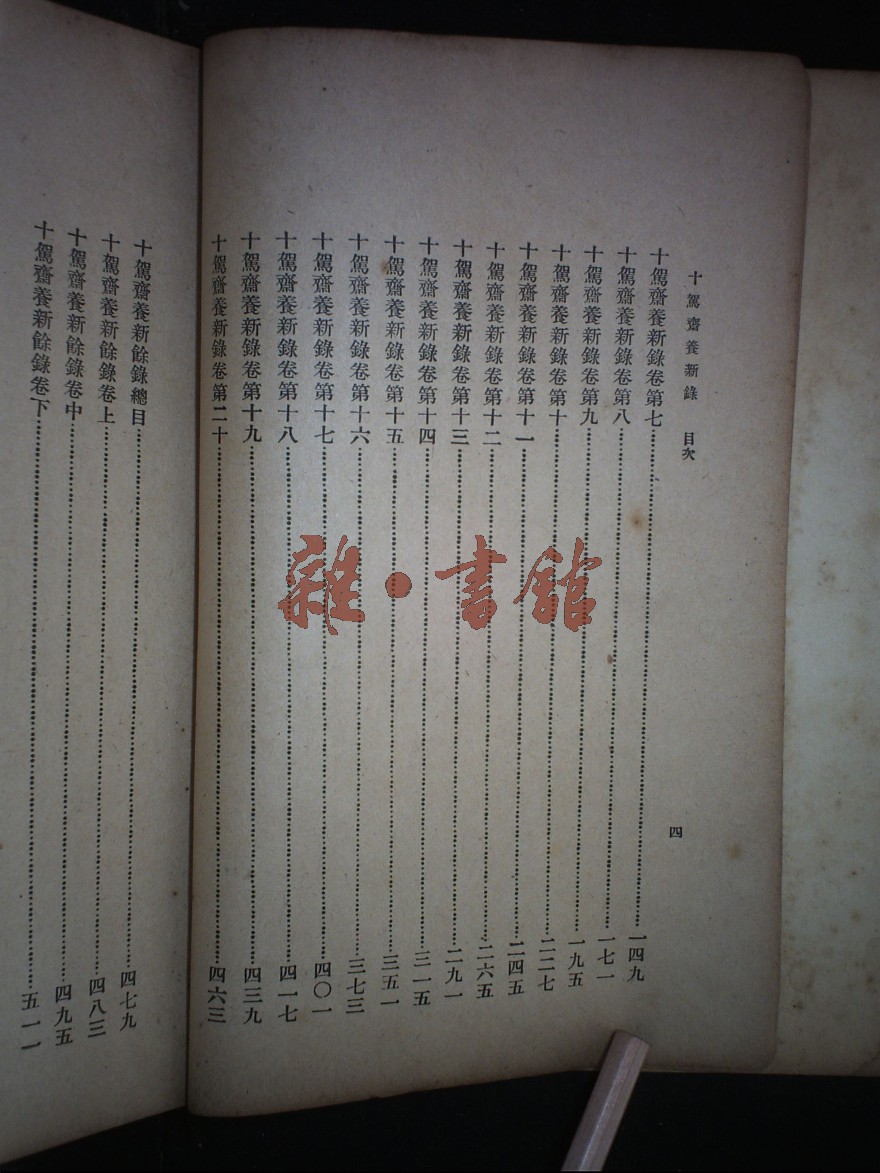 十駕齋養新錄 目次 四
十駕齋養新錄卷第七……一四九
十駕齋養新錄卷第八……一七一
十駕齋養新錄卷第九……一九五
十駕齋養新錄卷第十……二二七
十駕齋養新錄卷第十一……二四五
十駕齋養新錄卷第十二……二六五
十駕齋養新錄卷第十三……二九一
十駕齋養新錄卷第十四……三一五
十駕齋養新錄卷第十五……三五一
十駕齋養新錄卷第十六……三七三
十駕齋養新錄卷第十七……四〇一
十駕齋養新錄卷第十八……四一七
十駕齋養新錄卷第十九……四三九
十駕齋養新錄卷第二十……四六三
十駕齋養新餘錄總目……四七九
十駕齋養新餘錄卷上……四八三
十駕齋養新餘錄卷中……四九五
十駕齋養新餘錄卷下……五一一
雜·書館